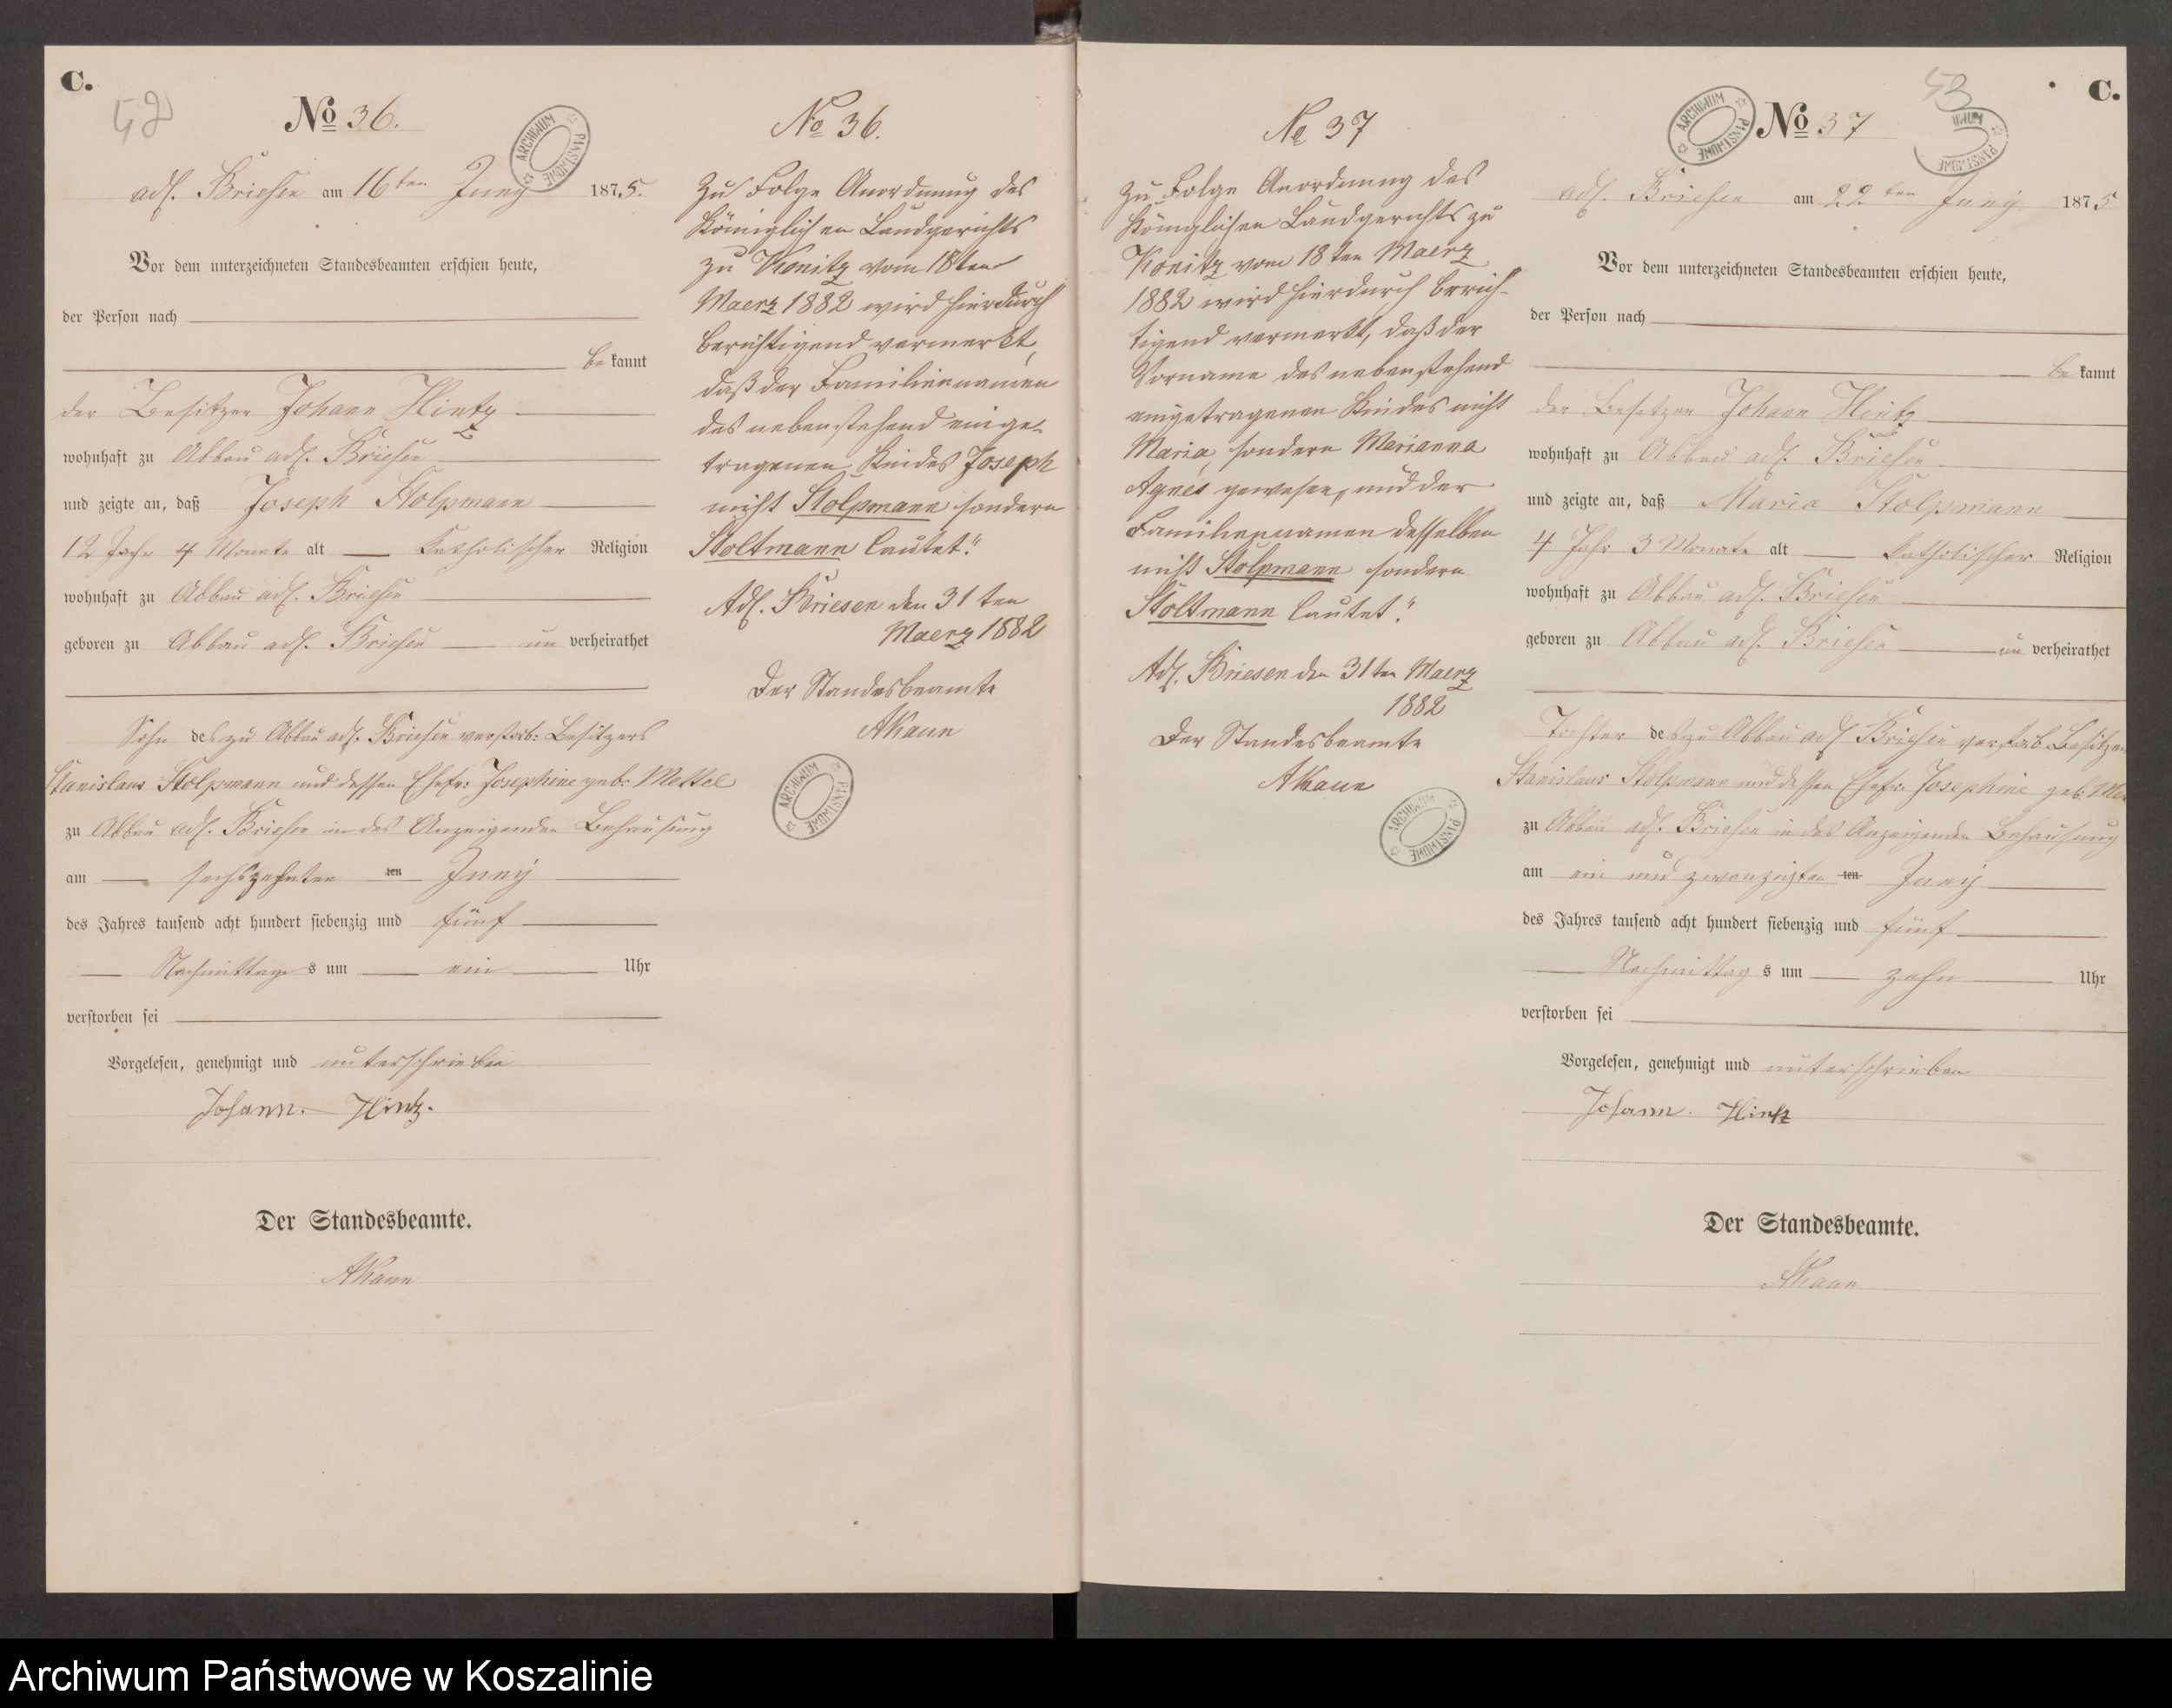 C.
52
No 36.
adl. Briesen am 16ten Juny 1875.
Vor dem unterzeichneten Standesbeamten erschien heute,
der Person nach
be kannt
der Besitzer Johann Hintz
wohnhaft zu Abbau adl. Briesen
und zeigte an, daß Joseph Stolpmann
12 Jahr 4 Monate alt katholischer Religion
wohnhaft zu Abbau adl. Briesen
geboren zu Abbau adl. Briesen un verheirathet
Sohn des zu Abbau adl. Briesen verstorb: Besitzers
Stanislaus Stolpmann und dessen Ehefr: Josephine geb: Mettel
zu Abbau adl. Briesen in des Anzeigenden Behausung
am sechszehnten ten Juny
des Jahres tausend acht hundert siebenzig und fünf
Nachmittag s um ein Uhr
verstorben sei
Vorgelesen, genehmigt und unterschrieben
Johann. Hintz.
Der Standesbeamte.
AKaun
No 36.
Zu Folge Anordnung des
Königlichen Landgerichts
zu Konitz vom 18ten
Maerz 1882 wird hierdurch
berichtigend vermerkt,
daß der Familiennamen
des nebenstehend einge-
tragenen Kindes Joseph
nicht Stolpmann sondern
Stoltmann lautet."
Adl. Briesen den 31ten
Maerz 1882
Der Standesbeamte
AKaun
ARCHIWUM PAŃSTWOWE
No 37
Zu Folge Anordnung des
Königlichen Landgerichts zu
Konitz vom 18ten Maerz
1882 wird hierdurch berich-
tigend vermerkt, daß der
Vorname des nebenstehend
eingetragenen Kindes nicht
Maria, sondern Marianna
Agnes gewesen, und der
Familiennamen desselben
nicht Stolpmann sondern
Stoltmann lautet."
Adl. Briesen den 31ten Maerz
1882
Der Standesbeamte
AKaun
ARCHIWUM PAŃSTWOWE
C.
53
No 37
adl. Briesen am 22ten Juny 1875
Vor dem unterzeichneten Standesbeamten erschien heute,
der Person nach
be kannt
der Besitzer Johann Hintz
wohnhaft zu Abbau adl. Briesen
und zeigte an, daß Maria Stolpmann
4 Jahr 3 Monate alt katholischer Religion
wohnhaft zu Abbau adl. Briesen
geboren zu Abbau adl. Briesen un verheirathet
Tochter des zu Abbau adl Briesen verstorb. Besitzers
Stanislaus Stolpmann und dessen Ehefr. Josephine geb.
zu Abbau adl. Briesen in des Anzeigenden Behausung
am ein und zwanzigsten ten Juny
des Jahres tausend acht hundert siebenzig und fünf
Nachmittag s um zehn Uhr
verstorben sei
Vorgelesen, genehmigt und unterschrieben
Johann. Hintz
Der Standesbeamte.
AKaun
Archiwum Państwowe w Koszalinie